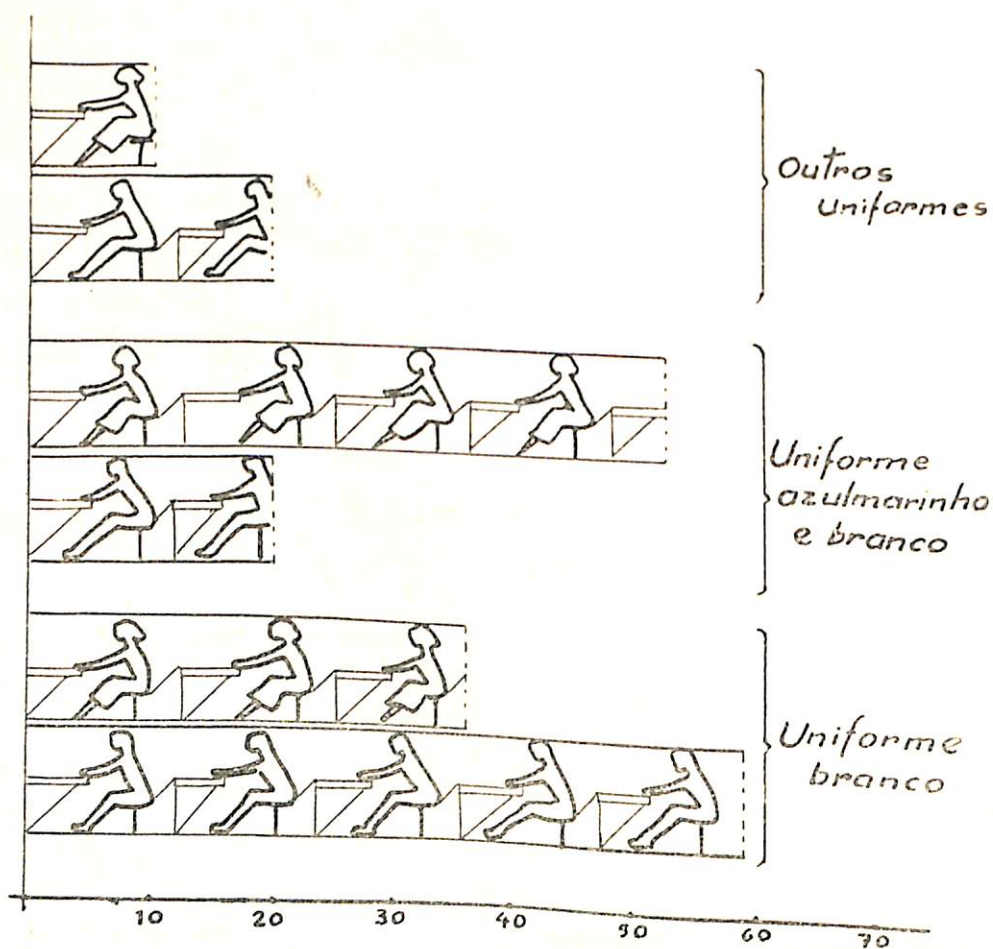 Outros
Uniformes
Uniforme
azulmarinho
e branco
Uniforme
branco
10 20 30 40 50 60 70